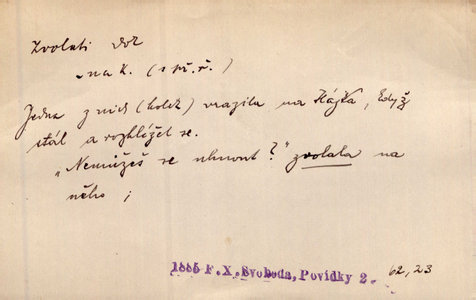 Zvolati dok
„na k. (s př. ř.)
Jedna z nich (holek) vrazila na Hájka, když
stál a rozhlížel se.
„Nemůžeš se uhnout?" zvolala na
něho;
1885 F. X. Svoboda, Povídky 2. 62,23